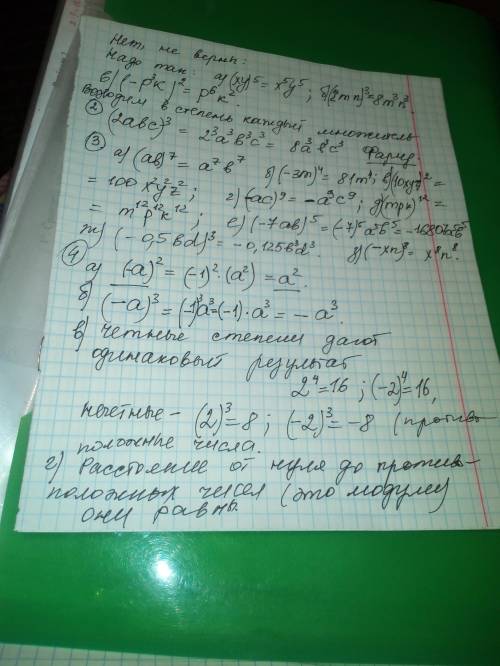 Нет, не верны:
Надо так: а) (xy)⁵ = x⁵y⁵; б) (2mn)³ = 8m³n³.
в) (-p³k)² = p⁶k²
Возводим в степень каждый множитель
② (2abc)³ = 2³a³b³c³ = 8a³b³c³
③ а) (ab)⁷ = a⁷b⁷ б) (-3m)⁴ = 81m⁴; в) (10xyz)² =
= 100x²y²z²; г) (-ac)⁹ = -a⁹c⁹; д) (mpk)¹² =
= m¹²p¹²k¹²; е) (-7ab)⁵ = (-7)⁵a⁵b⁵ = -16807a⁵b⁵
ж) (-0,5bd)³ = -0,125b³d³. з) (-xn)⁸ = x⁸n⁸.
④ а) (-a)² = (-1)²·(a²) = a².
б) (-a)³ = (-1)³a³ = (-1)·a³ = -a³.
в) четные степени дают
одинаковый результат
2⁴ = 16; (-2)⁴ = 16,
нечетные - (2)³ = 8; (-2)³ = -8 (противо-
положные числа.
г) Расстояние от нуля до противо-
положных чисел (это модули)
они равны.